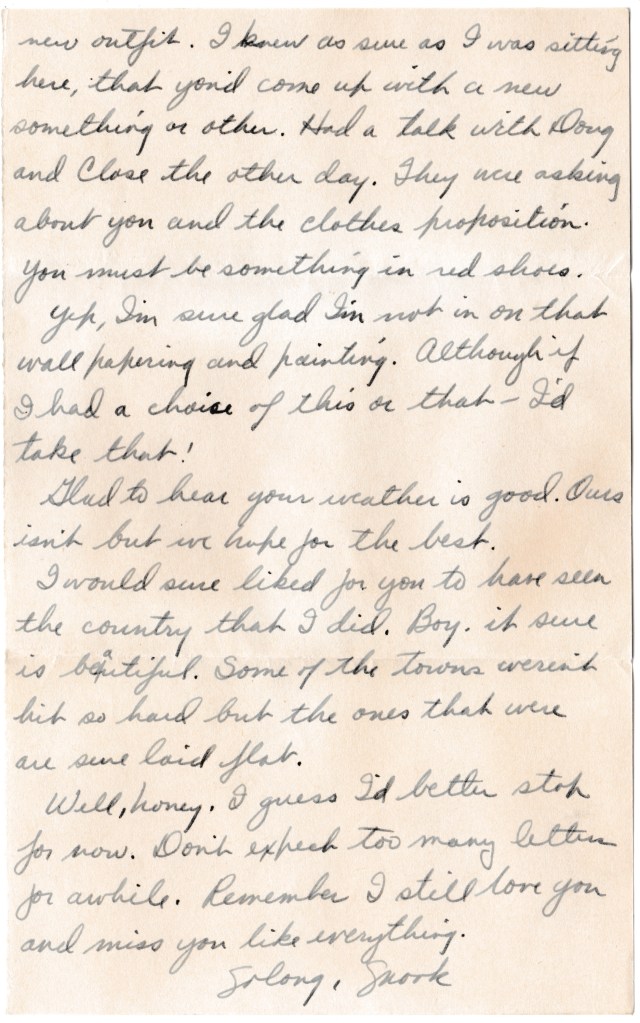 new outfit. I knew as sure as I was sitting
here, that you'd come up with a new
something or other. Had a talk with Doug
and Close the other day. They were asking
about you and the clothes proposition.
You must be something in red shoes.
Yep, I'm sure glad I'm not in on that
wall papering and painting. Although if
I had a choise of this or that - I'd
take that!
Glad to hear your weather is good. Ours
isn't but we hope for the best.
I would sure liked for you to have seen
the country that I did. Boy. it sure
is beautiful. Some of the towns weren't
hit so hard but the ones that were
are sure laid flat.
Well, honey. I guess I'd better stop
for now. Don't expect too many letters
for awhile. Remember I still love you
and miss you like everything.
So long, Snook